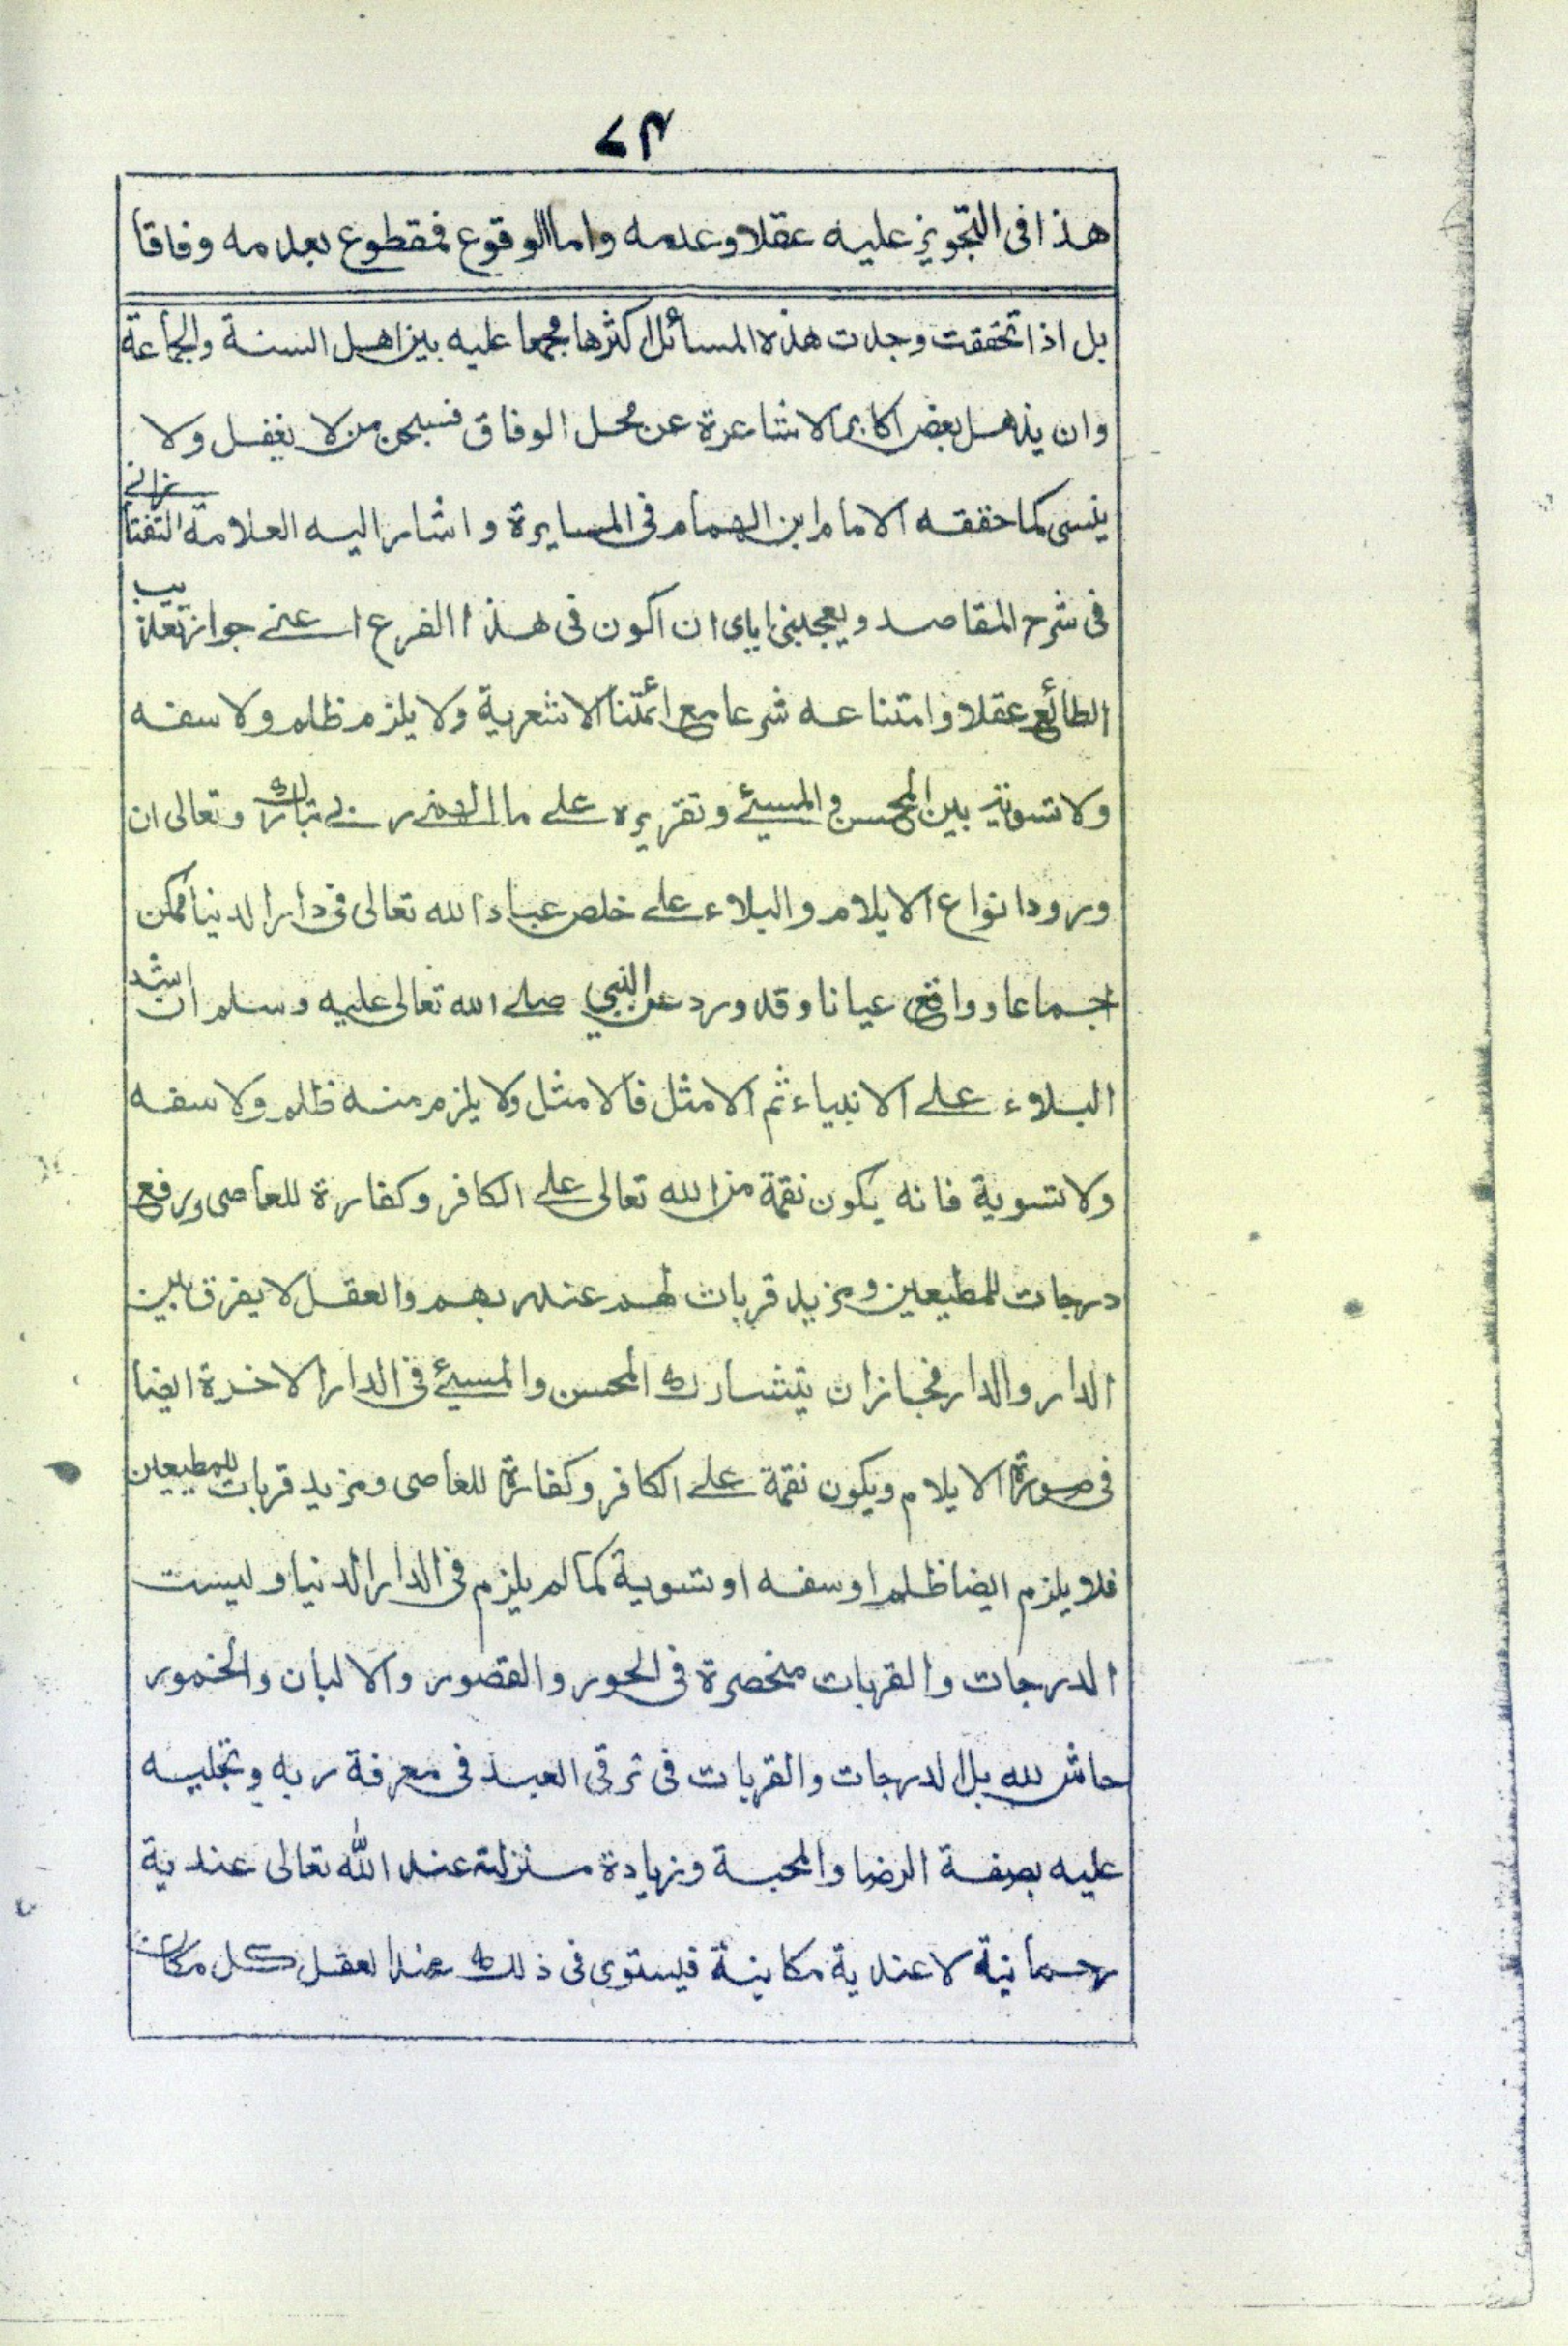 ٧٣
هذا فى التجويز عليه عقلا وعدمه واما الوقوع فمقطوع بعدمه وفاقا
بل اذا تحققت وجدت هذه المسائل اكثرها مجمعا عليه بين اهل السنة والجماعة
وان يذهل بعض اكابر الاشاعرة عن محل الوفاق فسبحن من لا يغفل ولا
ينسى كما حققه الامام ابن الهمام فى المسايرة واشار اليه العلامة التفتازانى
فى شرح المقاصد ويعجبنى اياى ان اكون فى هذا الفرع اعنى جواز تعذيب
الطائع عقلا وامتناعه شرعا مع ائمتنا الاشعرية ولا يلزم ظلم ولا سفه
ولا تسوية بين المحسن والمسيئ وتقريره على ما الهمنى ربى تبارك وتعالى ان
ورود انواع الايلام والبلاء على خلص عباد الله تعالى فى دار الدنيا ممكن
اجماعا وواقع عيانا وقد ورد عن النبي صلى الله تعالى عليه وسلم ان اشد
البلاء على الانبياء ثم الامثل فالامثل ولا يلزم منه ظلم ولا سفه
ولا تسوية فانه يكون نقمة من الله تعالى على الكافر وكفارة للعاصى ورفع
درجات للمطيعين ومزيد قربات لهم عند ربهم والعقل لا يفرق بين
الدار والدار فجاز ان يتشارك المحسن والمسيئ فى الدار الاخرة ايضا
فى صورة الايلام ويكون نقمة على الكافر وكفارة للعاصى ومزيد قربات للمطيعين
فلا يلزم ايضا ظلم او سفه او تسوية كما لم يلزم فى الدار الدنيا وليست
الدرجات والقربات منحصرة فى الحور والقصور والالبان والخمور
حاش لله بل الدرجات والقربات فى ترقى العبد فى معرفة ربه وتجليه
عليه بصفة الرضا والمحبة وزيادة منزلته عند الله تعالى عندية
رحمانية لا عندية مكانية فيستوى فى ذلك عند العقل كل مكان